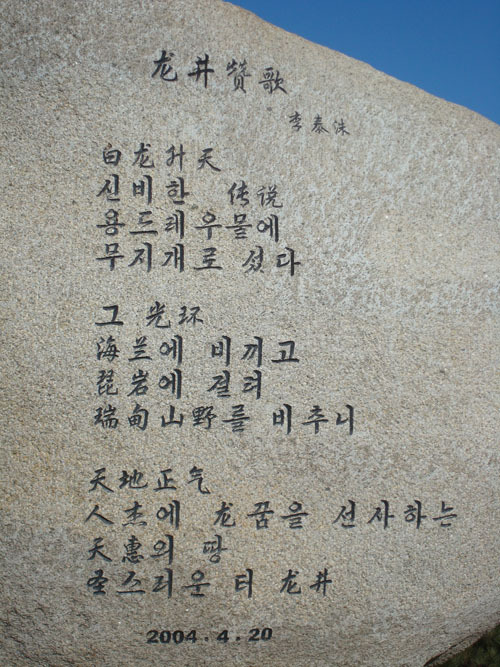 龙井赞歌
李泰洙
白龙升天
신비한 传说
용드레우물에
무지개로 섰다
그 光环
海兰에 비끼고
琵岩에 걸려
瑞甸山野를 비추니
天地正气
人杰에 龙꿈을 선사하는
天惠의 땅
성스러운 터 龙井
2004.4.20